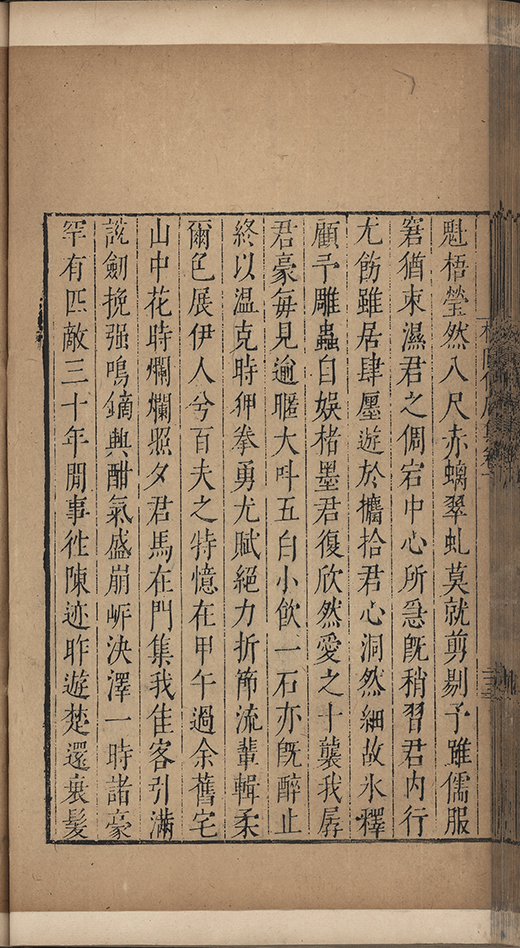 魁梧瑩然八尺赤螭翠虬莫就剪剔予雖儒服
窘猶束濕君之倜宕中心所急旣稍習君內行
尤飭雖居肆廛遊於攟拾君心洞然細故氷釋
顧予雕蟲自娛楮墨君復欣然愛之十襲我孱
君豪每見逾暱大呌五白小飲一石亦旣醉止
終以温克時狎拳勇尤賦絕力折節流輩輯柔
爾色展伊人兮百夫之特憶在甲午過余舊宅
山中花時爛爛照夕君馬在門集我佳客引滿
說劒挽强鳴鏑興酣氣盛崩岞決澤一時諸豪
罕有匹敵三十年閒事徃陳迹昨遊楚還衰髮